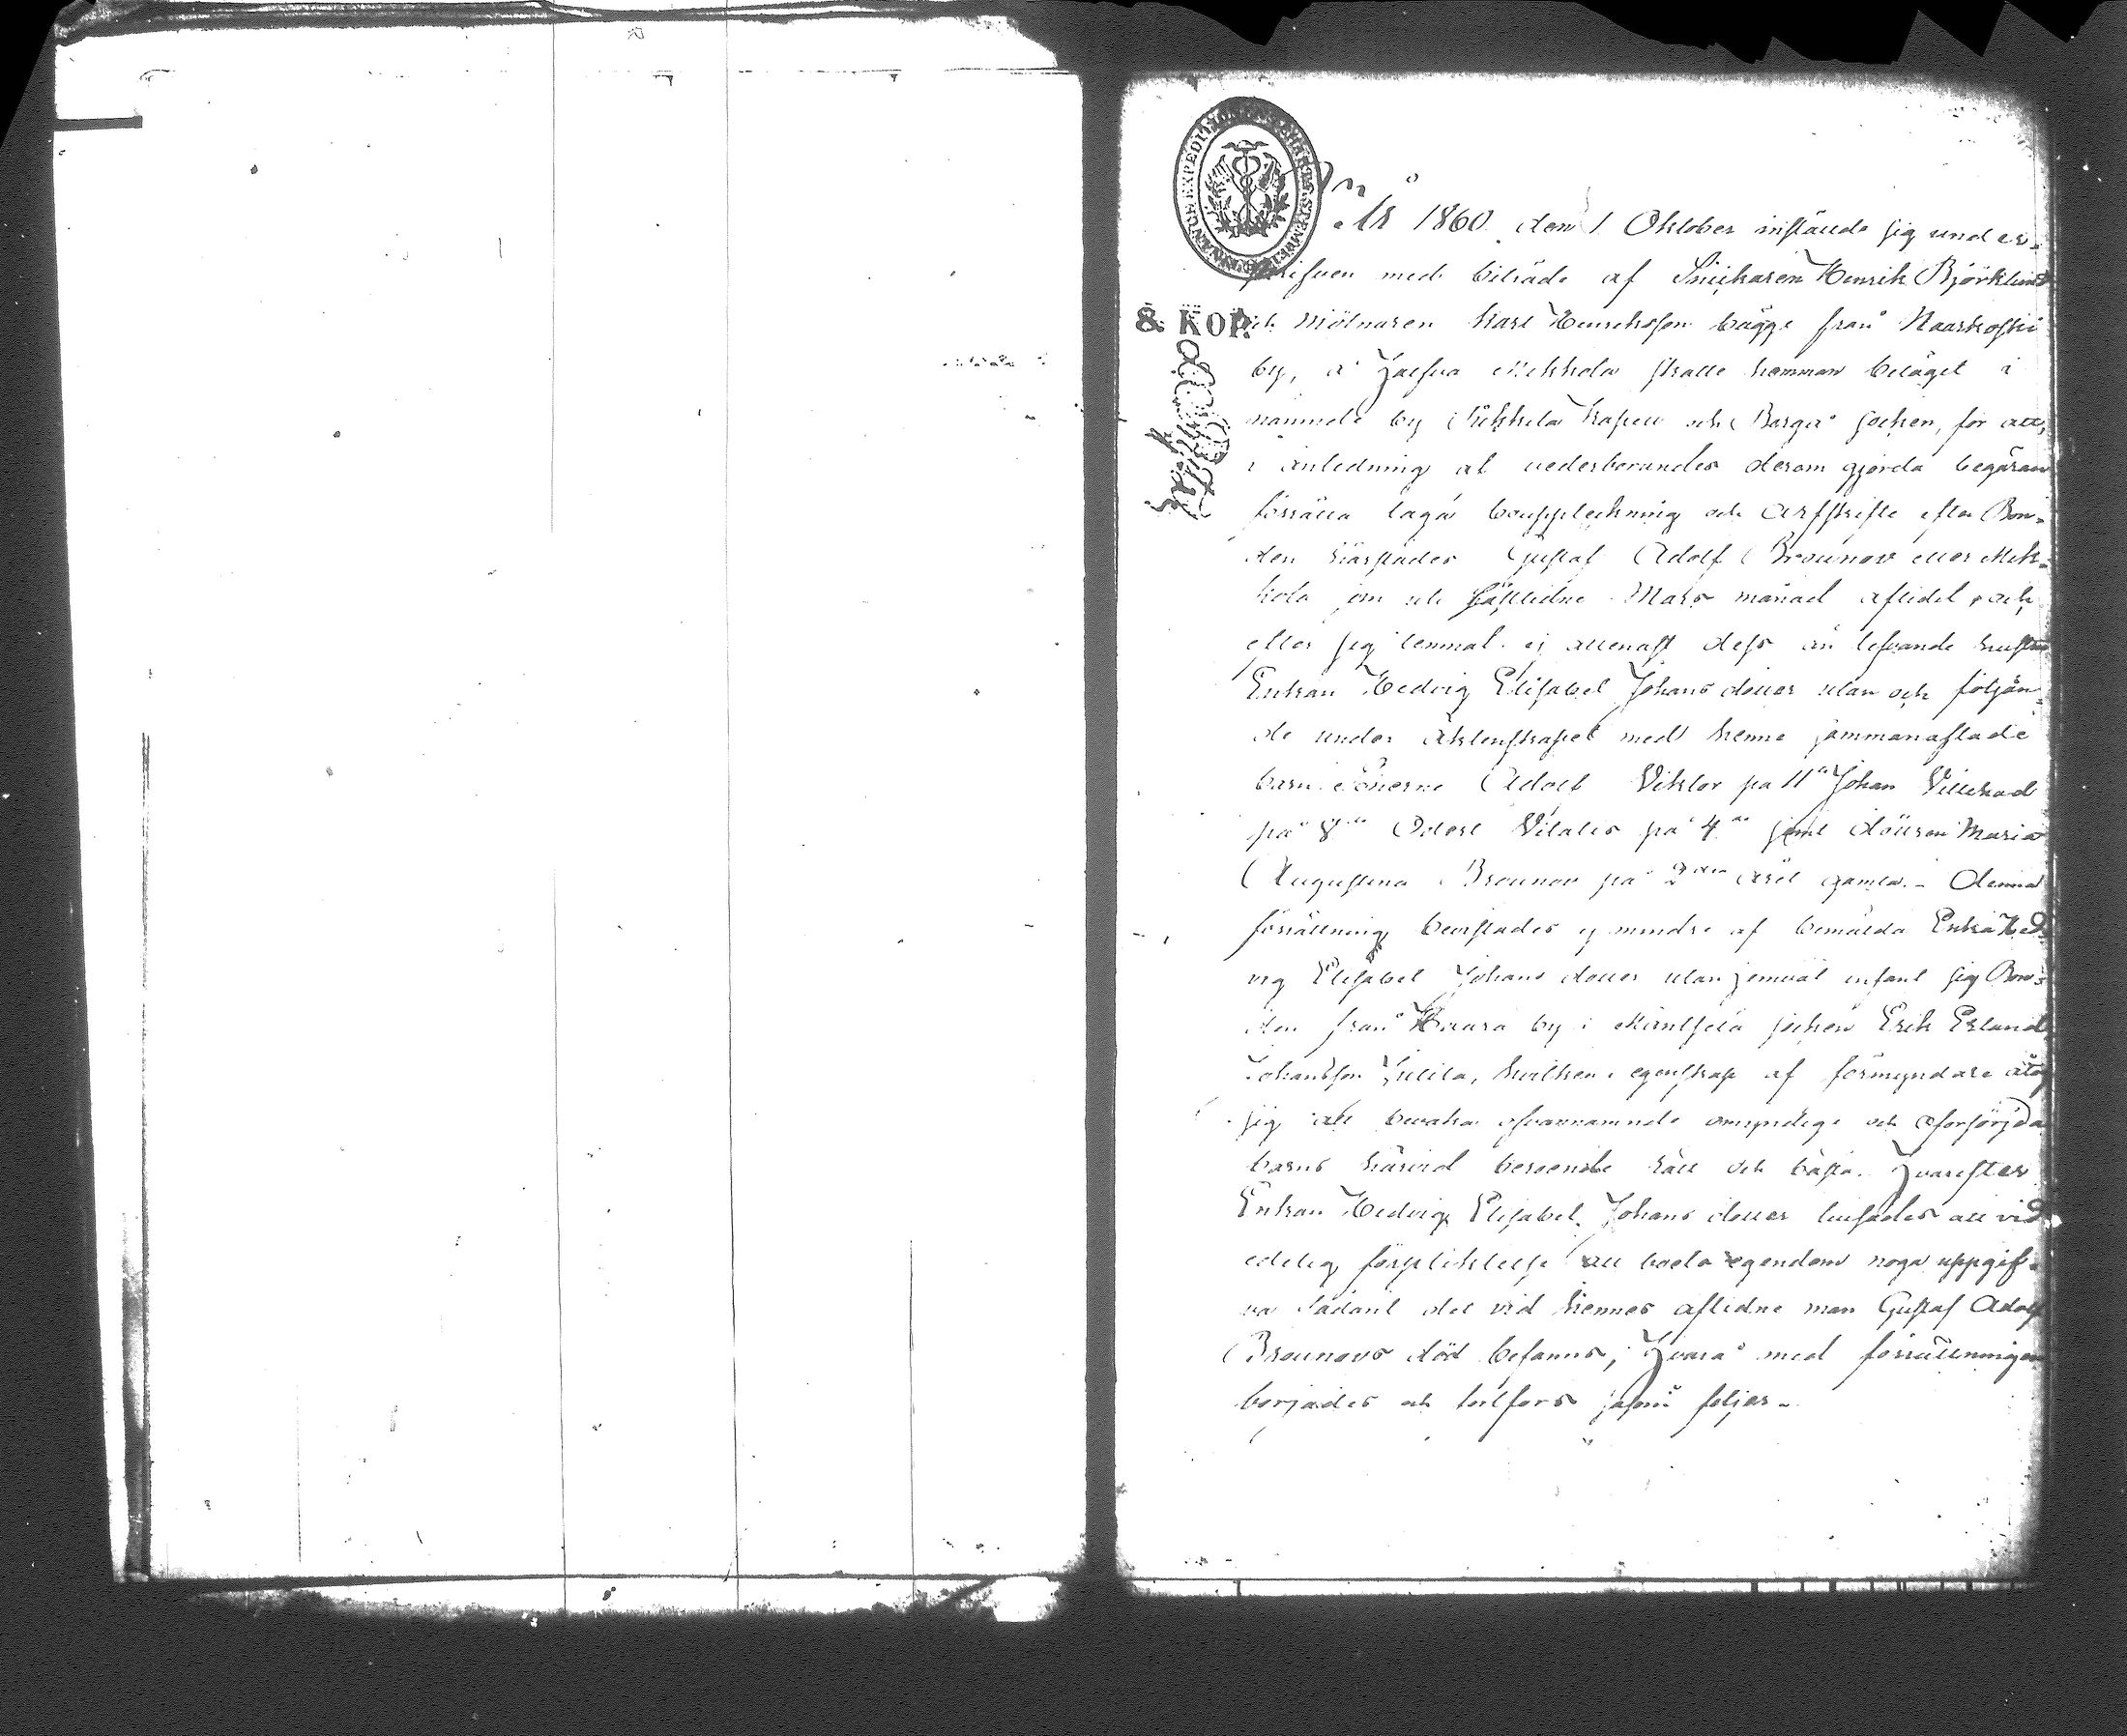 År 1860 den 1 Oktober instälde sig under-
skrifven med biträde af Snickaren Henrik Björklund
8 KOP.
och Mölnaren Karl Henriksson bägge från Naarkoski
by, å Jaefva Mikkola skatte hemman beläget i
nämnde by Pukkila kapell och Borgå socken, för att,
i anledning af vederbörandes derom gjorda begäran
förrätta laga bouppteckning och arfskifte efter Bon-
den härstädes Gustaf Adolf Brounov eller Mik-
kola som uti sistlidne Mars månad aflidit, och
efter sig lemnat ej allenast dess än lefvande hustru
Enkan Hedvig Elisabet Johans dotter utan och följan-
de under äktenskapet med henne sammanaflade
barn Sönerne Adolf Viktor på 11te Johan Villehad
på 8de Edvert Vitalis på 4de samt dottren Maria
Augustina Brounov på 2dra året gamla. - Denna
förrättning bevistades ej mindre af bemälda Enka Hed-
vig Elisabet Johans dotter utan jemväl infant sig Bon-
den från Haara by i Mäntsälä socken Erik Erland
Johansson Jutila, hvilken i egenskap af förmyndare åtog
sig att bevaka ofvannämnde omyndige och oförsörjda
barns härvid beroende rätt och bästa. Hvarefter
Enkan Hedvig Elisabet Johans dotter lefvades att vid
edelig förpliktelse all boets egendom noga uppgif-
va sådant det vid hennes aflidne man Gustaf Adolf
Brounovs död befanns; Hvarå med förrättningen
börjades och tillfors såsom följer.-